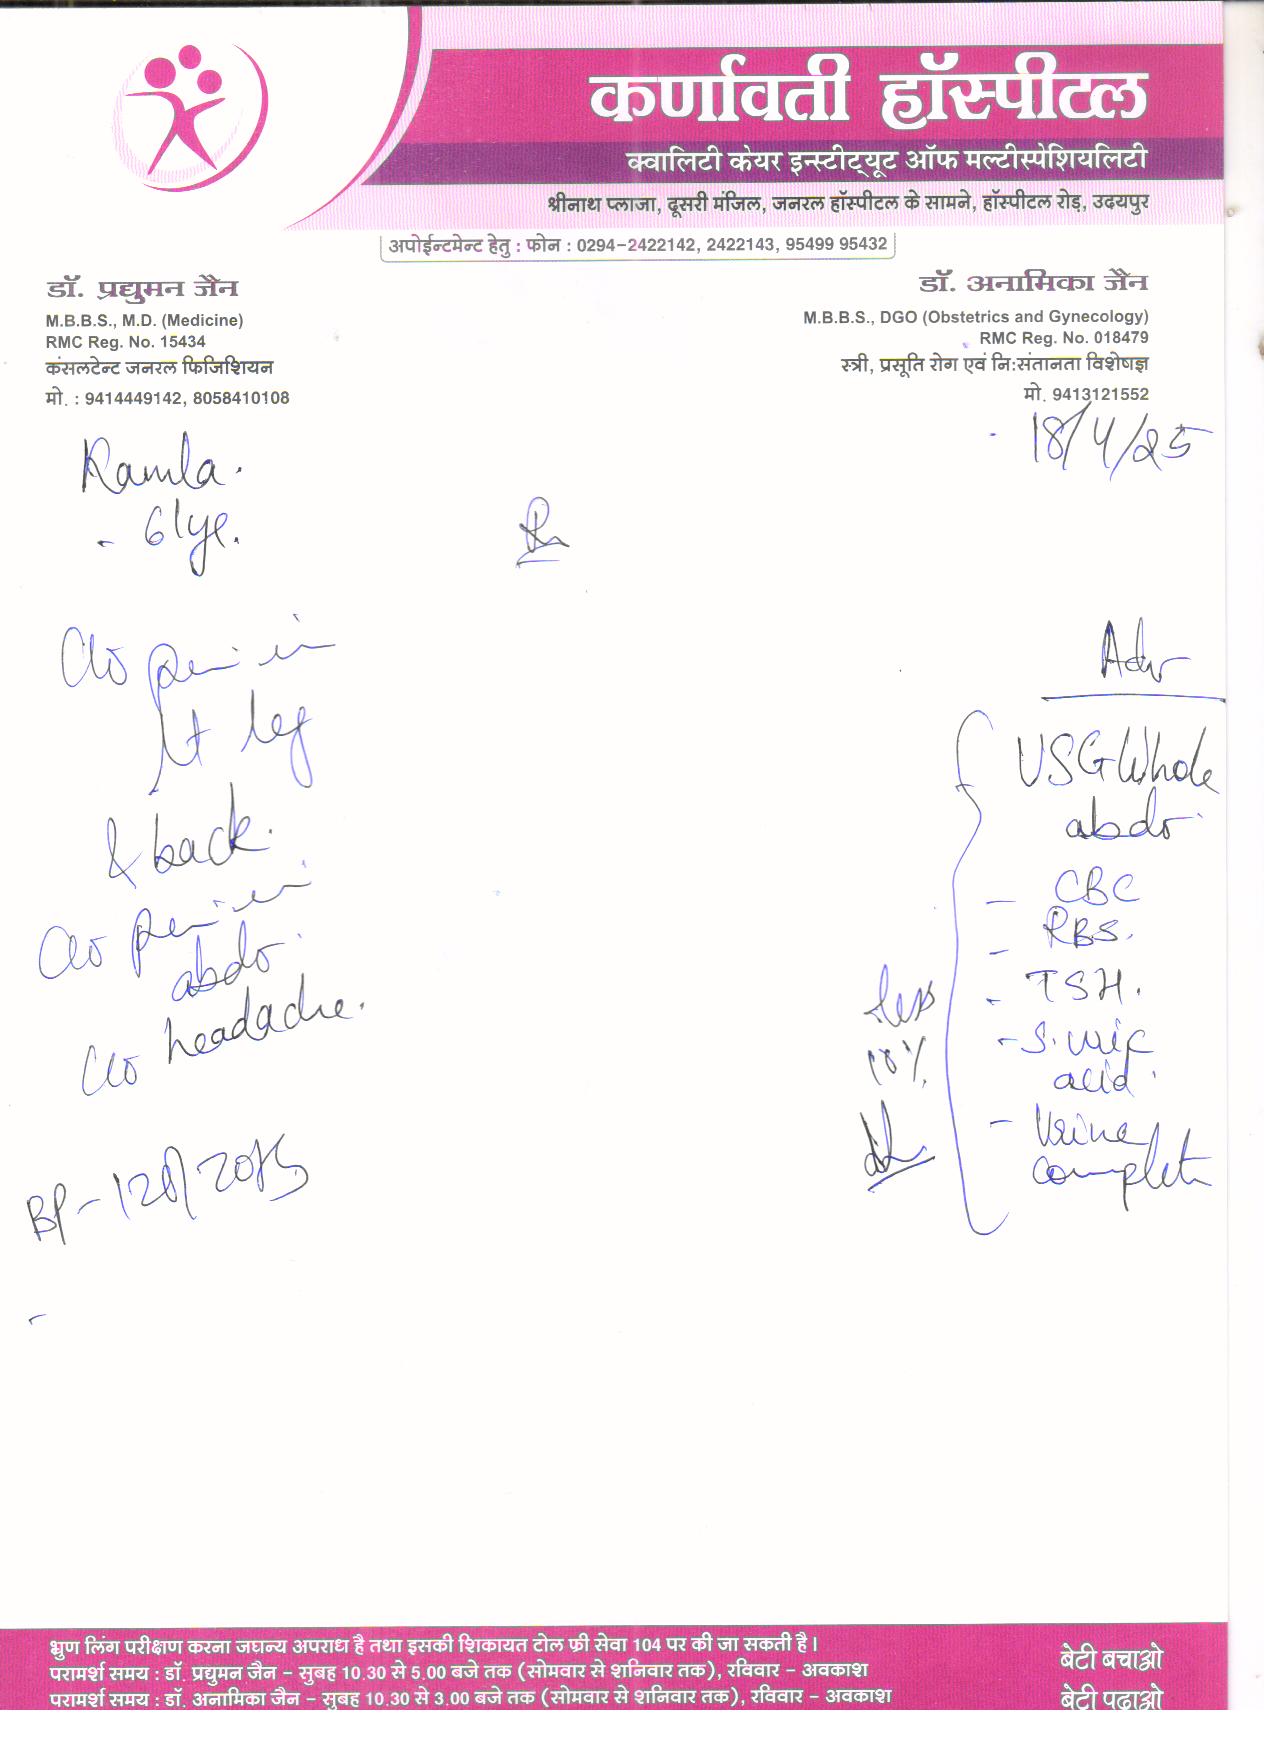 कर्णावती हॉस्पीटल
क्वालिटी केयर इन्स्टीट्यूट ऑफ मल्टीस्पेशियलिटी
श्रीनाथ प्लाजा, दूसरी मंजिल, जनरल हॉस्पीटल के सामने, हॉस्पीटल रोड़, उदयपुर
अपोईन्टमेन्ट हेतु : फोन : 0294-2422142, 2422143, 95499 95432
डॉ. प्रद्युमन जैन
M.B.B.S., M.D. (Medicine)
RMC Reg. No. 15434
कंसलटेन्ट जनरल फिजिशियन
मो. : 9414449142, 8058410108
डॉ. अनामिका जैन
M.B.B.S., DGO (Obstetrics and Gynecology)
RMC Reg. No. 018479
स्त्री, प्रसूति रोग एवं निःसंतानता विशेषज्ञ
मो. 9413121552
18/4/25
Kamla.
- 61ye.
Rx
C/o pain in
Lt leg
& back.
C/o pain in
abdo.
C/o headache.
BP-120/
Adv
USG Whole
abdo.
- CBC
- RBS.
- TSH.
- S. uric
acid.
- Urine
complete
Less
10%
भ्रुण लिंग परीक्षण करना जघन्य अपराध है तथा इसकी शिकायत टोल फ्री सेवा 104 पर की जा सकती है।
परामर्श समय : डॉ. प्रद्युमन जैन – सुबह 10.30 से 5.00 बजे तक (सोमवार से शनिवार तक), रविवार – अवकाश
परामर्श समय : डॉ. अनामिका जैन – सुबह 10.30 से 3.00 बजे तक (सोमवार से शनिवार तक), रविवार – अवकाश
बेटी बचाओ
बेटी पढ़ाओ